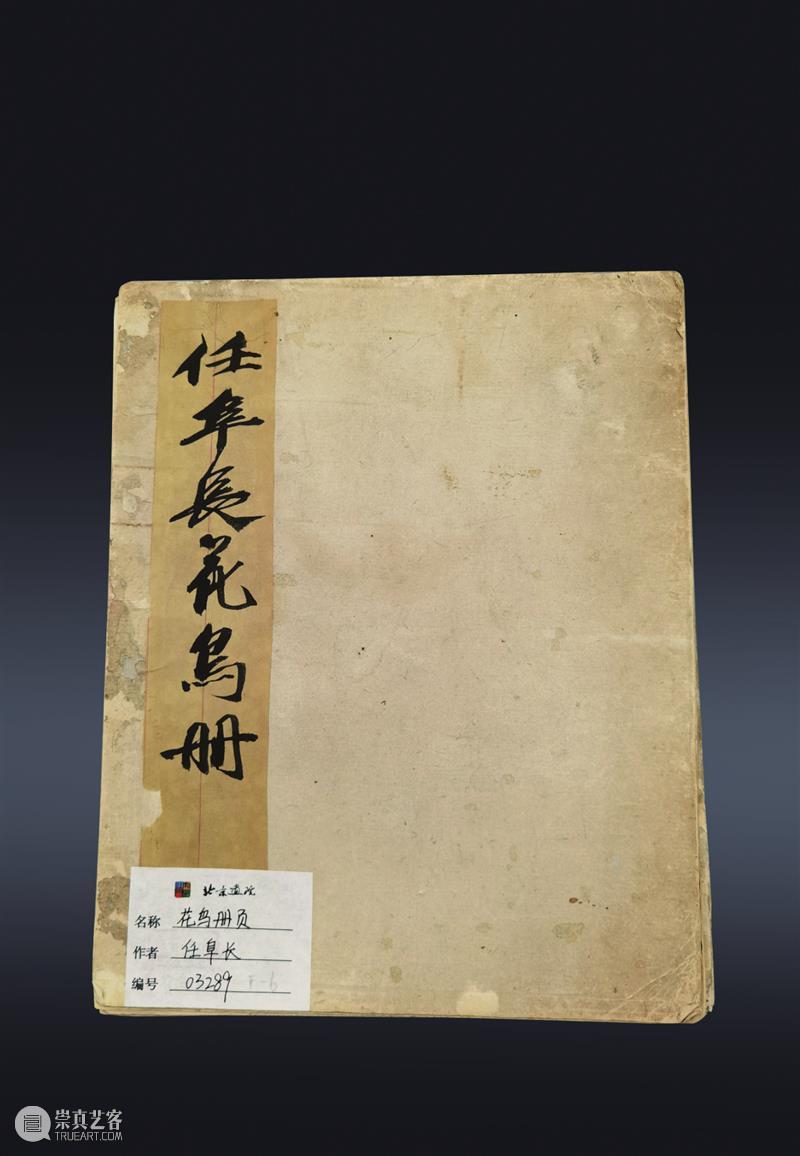 任阜長花鳥册
北京画院
名称 花鸟册页
作者 任阜长
编号 03289 F-6
崇真艺客
TRUEART.COM